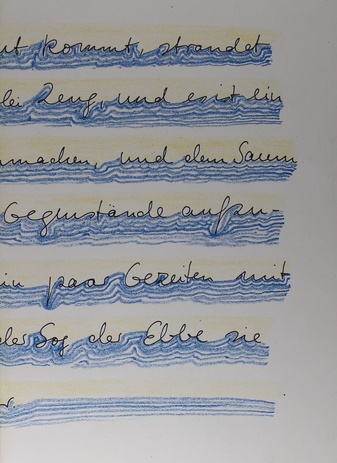 ut kommt, strandet
lei Zeug, und erst ein
machen, und dem Saum
Gegenstände aufzu-
in paar Gezeiten mit
der Sog der Ebbe sie